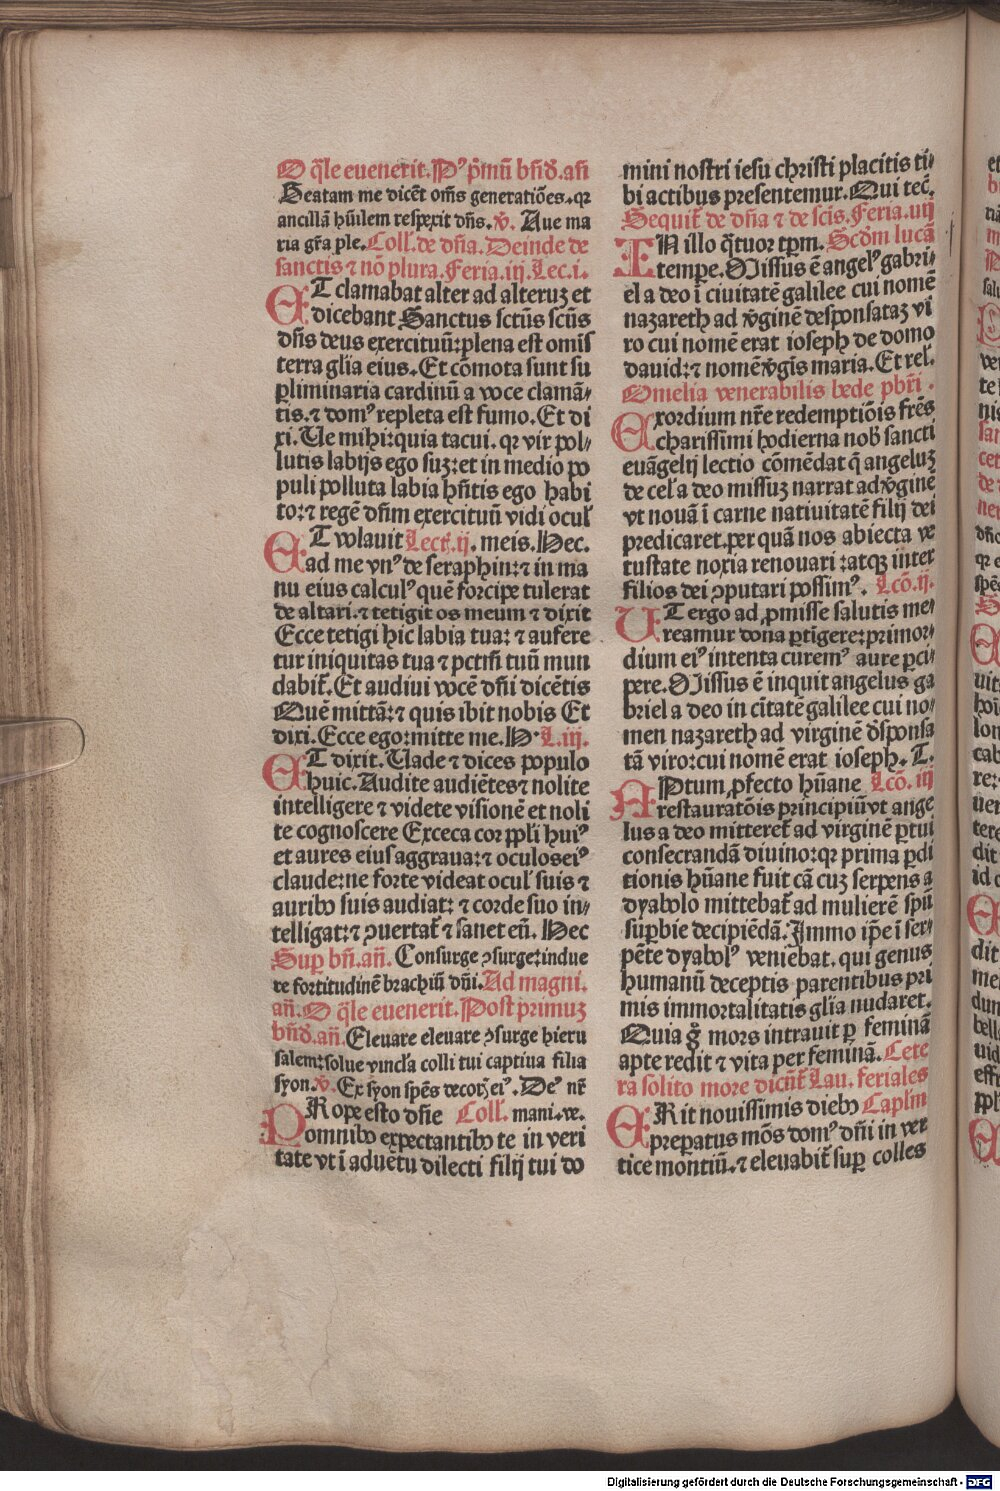 O q̄le euenerit. Pꝰ p̄mū bn̄d. an̄
Beatam me dicēt om̄s generatiōes. qꝛ
ancillā hūilem respexit dn̄s. v̄. Aue ma
ria gr̄a ple. Coll̄. de dn̄a. Deinde de
sanctis ⁊ nō plura. Feria. iij. Lec. i.
ET clamabat alter ad alteruꝫ et
dicebant Sanctus sctūs scūs
dn̄s deus exercituū: plena est omīs
terra glīa eius. Et cōmota sunt su
ꝑliminaria cardinū a voce clamā⸗
tis. ⁊ domꝰ repleta est fumo. Et di
xi. Ve mihi: quia tacui. qꝛ vir pol⸗
lutis labijs ego suꝫ: et in medio po
puli polluta labia hn̄tis ego habi
to: ⁊ regē dn̄m exercituū vidi ocul̄
ET volauit Lect̄. ij. meis. Hec.
ad me vnꝰ de seraphin: ⁊ in ma
nu eius calculꝰ quē forcipe tulerat
de altari. ⁊ tetigit os meum ⁊ dixit
Ecce tetigi hic labia tua: ⁊ aufere
tur iniquitas tua ⁊ pctm̄ tuū mun
dabit̄. Et audiui vocē dn̄i dicētis
Quē mittā: ⁊ quis ibit nobis Et
dixi. Ecce ego: mitte me. H. L. iij.
ET dixit. Vade ⁊ dices populo
huic. Audite audiētes ⁊ nolite
intelligere ⁊ videte visionē et noli
te cognoscere Exceca cor ppl̄i huiꝰ
et aures eius aggraua: ⁊ oculos eiꝰ
claude: ne forte videat ocul̄ suis ⁊
auribꝰ suis audiat: ⁊ corde suo in⸗
telligat: ⁊ ꝯuertat̄ ⁊ sanet eū. Hec
Suꝑ bn̄. an̄. Consurge ꝯsurge: indue
re fortitudinē brachiū dn̄i. Ad magni.
an̄. O q̄le euenerit. Post primuꝫ
bn̄d. an̄. Eleuare eleuare ꝯsurge hieru
salem: solue vincl̄a colli tui captiua filia
syon. v̄. Ex syon spēs decoꝝ eiꝰ. Deꝰ nr̄
PRope esto dn̄e Coll̄. mani. ve.
omnibꝰ expectantibꝰ te in veri
tate vt ī aduētu dilecti filij tui do
mini nostri iesu christi placitis ti⸗
bi actibus presentemur. Qui tec̄.
Sequit̄ de dn̄a ⁊ de scīs. Feria. iiij
IN illo q̄tuor tꝑm. Scd̄m lucā
tempe. Missus ē angelꝰ gabri⸗
el a deo ī ciuitatē galilee cui nomē
nazareth ad v̄ginē desponsataꝫ vi
ro cui nomē erat ioseph de domo
dauid: ⁊ nomē v̄gīs maria. Et rel̄.
Omelia venerabilis bede pbr̄i.
Exordium nr̄e redemptiōis fr̄es
charissimi hodierna nob̄ sancti
euāgelij lectio cōmēdat q̄ angeluꝫ
de cel̄ a deo missuꝫ narrat ad v̄ginē
vt nouā ī carne natiuitatē filij dei
predicaret. per quā nos abiecta ve
tustate noxia renouari: atqꝫ inter
filios dei ꝯputari possimꝰ. Lcō. ij.
VT ergo ad ꝓmisse salutis me⸗
reamur dona ꝑtīgere: primor⸗
dium eiꝰ intenta curemꝰ aure ꝑci⸗
pere. Missus ē inquit angelus ga
briel a deo in cītatē galilee cui no⸗
men nazareth ad virginē d̄sponsa
tā viro: cui nomē erat ioseph. T.
APtum ꝓfecto hūane Lcō. iij
restauratōis principiū vt ange
lus a deo mitteret̄ ad virginē ꝑtui
consecrandā diuino: qꝛ prima ꝑdi
tionis hūane fuit cā cuꝫ serpens a
dyabolo mittebat̄ ad mulierē spū
suꝑbie decipiēdā. Immo ip̄e ī ser⸗
pēte dyabolꝰ veniebat. qui genus
humanū deceptis parentibus pri
mis immortalitatis glīa nudaret.
Quia g̊ mors intrauit ꝑ feminā
apte redit ⁊ vita per feminā. Cete
ra solito more dicūt̄ Lau. feriales
ERit nouissimis diebꝰ Capl̄m
preparatus mōs domꝰ dn̄i in ver
tice montiū. ⁊ eleuabit̄ suꝑ colles
Digitalisierung gefördert durch die Deutsche Forschungsgemeinschaft - DFG